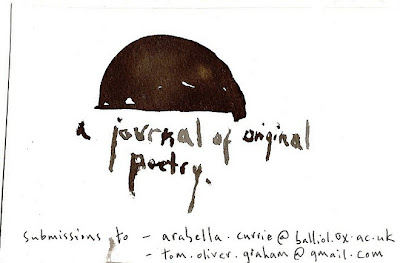 a journal of original
poetry.
submissions to - arabella.currie@balliol.ox.ac.uk
- tom.oliver.graham@gmail.com